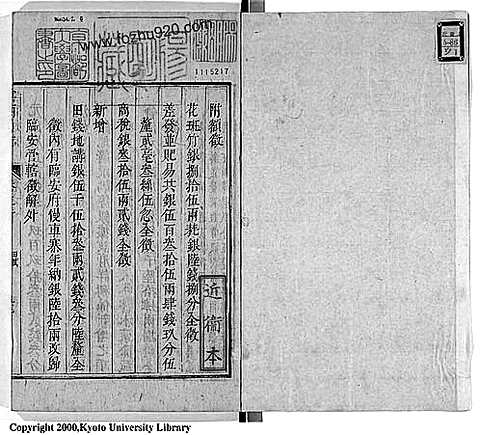 附額徵
花斑竹銀捌拾伍兩扥銀陸錢捌分全徵
差發並貺易共銀伍百叁拾伍兩肆錢玖分伍
釐貳毫叁絲伍忽全徵
商稅銀叁拾伍兩貳錢全徵
新增
田錢地講銀伍千伍拾叁兩貳錢叁分陸釐全
徵內有臨安府幔車寨年納銀陸拾兩改歸
元臨安管轄徵解外
近衞本
京都
大學圖
書之印
1115217
www.fozhu920.com
Copyright 2000,Kyoto University Library